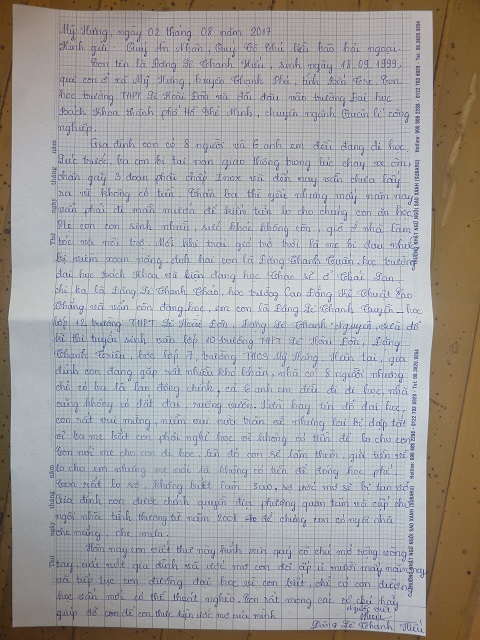 Mỹ Hưng, ngày 02 tháng 08 năm 2017
Kính gửi: Quý Ân Nhân, Quý Cô Chú kiều bào hải ngoại.
Con tên là Đặng Lê Thanh Hiếu, sinh ngày 18.09.1999,
quê con ở xã Mỹ Hưng, huyện Thạnh Phú, tỉnh Bến Tre. Con
học trường THPT Lê Hoài Đôn và đã đậu vào trường Đại học
Bách Khoa thành phố Hồ Chí Minh, chuyên ngành Quản lí công
nghiệp.
Gia đình con có 8 người và 6 anh em đều đang đi học.
Lúc trước, ba con bị tai nạn giao thông trong lúc chạy xe ôm,
chân gãy 3 đoạn phải chấp Inox và đến nay vẫn chưa lấy
ra vì không có tiền. Chân ba thì yếu nhưng mấy năm nay
vẫn phải đi mần mướn để kiếm tiền lo cho chúng con ăn học.
Mẹ con sinh nhiều, sức khỏe không còn, giờ ở nhà làm
tóc và nội trợ. Mỗi khi trái gió trở trời là mẹ bị đau nhức
bị viêm xoan nặng. Anh hai con là Đặng Thanh Tuấn, học trường
đại học Bách Khoa và hiện đang học Thạc sĩ ở Thái Lan
chị ba là Đặng Lê Thanh Thảo, học trường Cao Đẳng Kỹ Thuật Cao
Thắng và vẫn còn đang học, em con là Đặng Lê Thanh Tuyền học
lớp 12 trường THPT Lê Hoài Đôn, Đặng Lê Thanh Nguyên, vừa đỗ
kì thi tuyển sinh vào lớp 10 trường THPT Lê Hoài Đôn, Đặng
Thanh Triệu, học lớp 7, trường THCS Mỹ Hưng. Hiện tại, gia
đình con đang gặp rất nhiều khó khăn, nhà có 8 người nhưng
chỉ có ba là lao động chính, cả 6 anh em đều đi học, nhà
cũng không có đất đai, ruộng vườn. Lúc hay tin đỗ đại học,
con rất vui mừng, niềm vui vừa nhen về nhưng lại bị dập tắt
vì ba mẹ bắt con phải nghỉ học vì không có tiền để lo cho con.
Con nói mẹ cho con đi học, lên đó con sẽ làm thêm, gửi tiền về
lo cho em nhưng mẹ nói là không có tiền để đóng học phí.
Con rất lo sợ, không biết làm sao, sợ ước mơ sẽ bị tan vỡ.
Gia đình con được chính quyền địa phương quan tâm và cấp cho
ngôi nhà tình thương từ năm 2001 để chúng con có ngôi nhà
che nắng, che mưa.
Hôm nay con viết thư này kính xin quý cô chú mở rộng vòng
tay cứu vớt gia đình và ước mơ con đã ấp ủ mười mấy năm nay
và tiếp tục con đường đại học vì con biết, chỉ có con đường
học vấn mới có thể thoát nghèo. Con rất mong các cô chú hãy
giúp đỡ con để con thực hiện ước mơ của mình
Người viết
Hiếu
Đặng Lê Thanh Hiếu